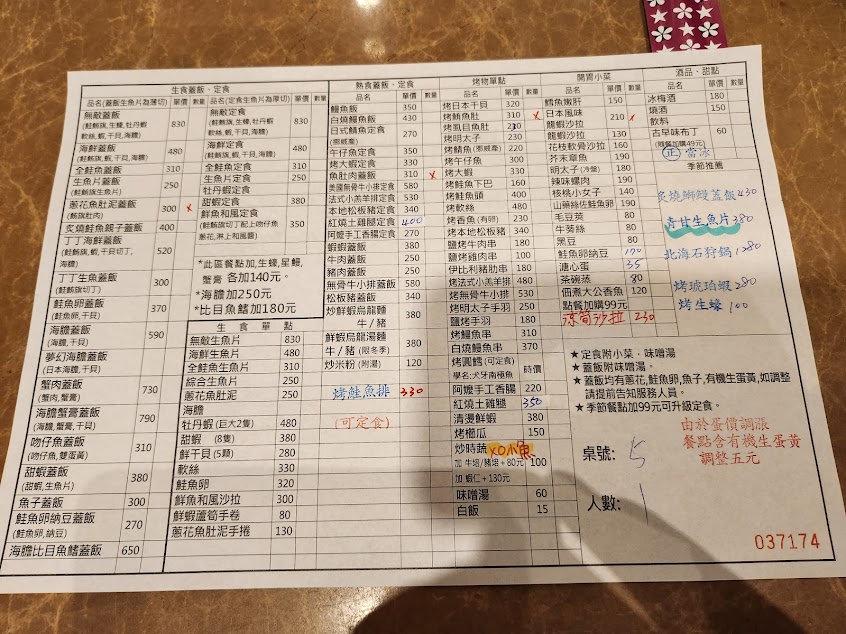 生食蓋飯、定食
品名(蓋飯生魚片為薄切) 單價 數量 品名(定食生魚片為厚切) 單價 數量
無敵蓋飯 830
(鮭鮪旗,生蠔,牡丹蝦
軟絲,蝦,干貝,海膽)
海鮮蓋飯 480
(鮭鮪旗,蝦,干貝,海膽)
全鮭魚蓋飯 310
生魚片蓋飯 250
(鮭鮪旗生魚片)
蔥花魚肚泥蓋飯 300 x
(鮪旗魚肚)
炙燒鮭魚親子蓋飯 400
丁丁海鮮蓋飯 520
(鮭鮪旗,蝦,干貝切丁,
海膽)
丁丁生魚蓋飯 300
(鮭鮪旗切丁)
鮭魚卵蓋飯 370
(鮭魚卵,干貝)
海膽蓋飯 590
(海膽,干貝)
夢幻海膽蓋飯
(日本海膽,干貝)
蟹肉蓋飯 730
(蟹肉,蟹膏)
海膽蟹膏蓋飯 790
(海膽,蟹膏,干貝)
吻仔魚蓋飯 310
(吻仔魚,雙蛋黃)
甜蝦蓋飯 380
(甜蝦,生魚片)
魚子蓋飯 300
鮭魚卵納豆蓋飯 270
(鮭魚卵,納豆)
海膽比目魚鰭蓋飯 650
無敵定食 830
(鮭鮪旗,生蠔,牡丹蝦
軟絲,蝦,干貝,海膽)
海鮮定食 480
(鮭鮪旗,蝦,干貝,海膽)
全鮭魚定食 310
生魚片定食 250
牡丹蝦定食
甜蝦定食 380
鮮魚和風定食 350
(鮭鮪旗切丁配上吻仔魚
蔥花,淋上和風醬)
*此區餐點加,生蠔,星鰻,
蟹膏 各加140元。
*海膽加250元
*比目魚鰭加180元
生 食 單 點
無敵生魚片 830
海鮮生魚片 480
全鮭魚生魚片 310
綜合生魚片 250
蔥花魚肚泥 250
海膽
牡丹蝦(巨大2隻) 480
甜蝦 (8隻) 380
鮮干貝(5顆) 280
軟絲 330
鮭魚卵 320
鮮魚和風沙拉 300
鮮蝦蘆筍手卷 80
蔥花魚肚泥手捲 130
熟食蓋飯、定食
品名 單價 數量
鰻魚飯 350
白燒鰻魚飯 430
日式鯖魚定食 270
(挪威產)
午仔魚定食 350
烤大蝦定食 330
魚肚肉蓋飯 310 x
美國無骨牛小排定食 580
法式小羔羊定食 530
本地松板豬定食 340
紅燒土雞腿定食 400
阿嬤手工香腸定食 270
蝦蝦蓋飯 380
牛肉蓋飯 250
豬肉蓋飯 250
無骨牛小排蓋飯 580
松板豬蓋飯 340
炒鮮蝦烏龍麵 380
牛 / 豬
鮮蝦烏龍湯麵 380
牛 / 豬 (限冬季)
炒米粉 (附湯) 120
烤鮭魚排 330
(可定食)
烤物單點
品名 單價 數量
烤日本干貝 320
烤鮪魚肚 310 x
烤虱目魚肚 210
烤明太子 230
烤鯖魚 (挪威產) 220
烤午仔魚 300
烤大蝦 330
烤鮭魚下巴 160
烤鮭魚頭 400
烤軟絲 480
烤香魚 (有卵) 230
烤本地松板豬 340
鹽烤牛肉串 180
鹽烤雞肉串 100
伊比利豬肋串 180
烤法式小羔羊排 480
烤無骨牛小排 530
烤明太子手羽 250
鹽烤手羽 180
烤鰻魚串 310
白燒鰻魚串 370
烤圓鱈(可定食) 時價
學名:犬牙南極魚
阿嬤手工香腸 220
紅燒土雞腿 350
清燙鮮蝦 380
烤櫛瓜 150
炒時蔬 XO小魚 100
加 牛培/豬培+80元
加 蝦仁+130元
味噌湯 60
白飯 15
開胃小菜
品名 單價 數量
鱈魚嫩肝 150
日本風味 210 x
龍蝦沙拉
龍蝦沙拉 130
花枝軟骨沙拉 160
芥末章魚 190
明太子 (冷盤) 180
辣味螺肉 190
核桃小女子 140
山藥絲佐鮭魚卵 190
毛豆莢 80
牛蒡絲 80
黑豆 80
鮭魚卵納豆 170
溏心蛋 35
茶碗蒸 80
佃煮大公香魚 120
點餐加購99元
涼筍沙拉 230
酒品、甜點
品名 單價 數量
冰梅酒 180
燒酒 150
飲料
古早味布丁 60
(隨餐加購49元)
正 當冰
季節推薦
炙燒鰤鰻蓋飯430
青甘生魚片380
北海石狩鍋1280
烤琥珀蝦280
烤生蠔100
★定食附小菜、味噌湯
★蓋飯附味噌湯。
★蓋飯均有蔥花,鮭魚卵,魚子,有機生蛋黃,如調整
請提前告知服務人員。
★季節餐點加99元可升級定食。
由於蛋價調漲
餐點含有機生蛋黃
調整五元
桌號: 5
人數: 1
037174